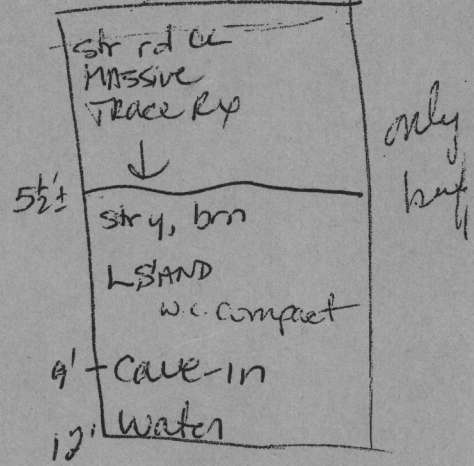 str rd CL
MASSIVE
TRACE RX
only
5½'±
str y, brn
LSAND
w.c. compact
9' Cave-in
12' Water